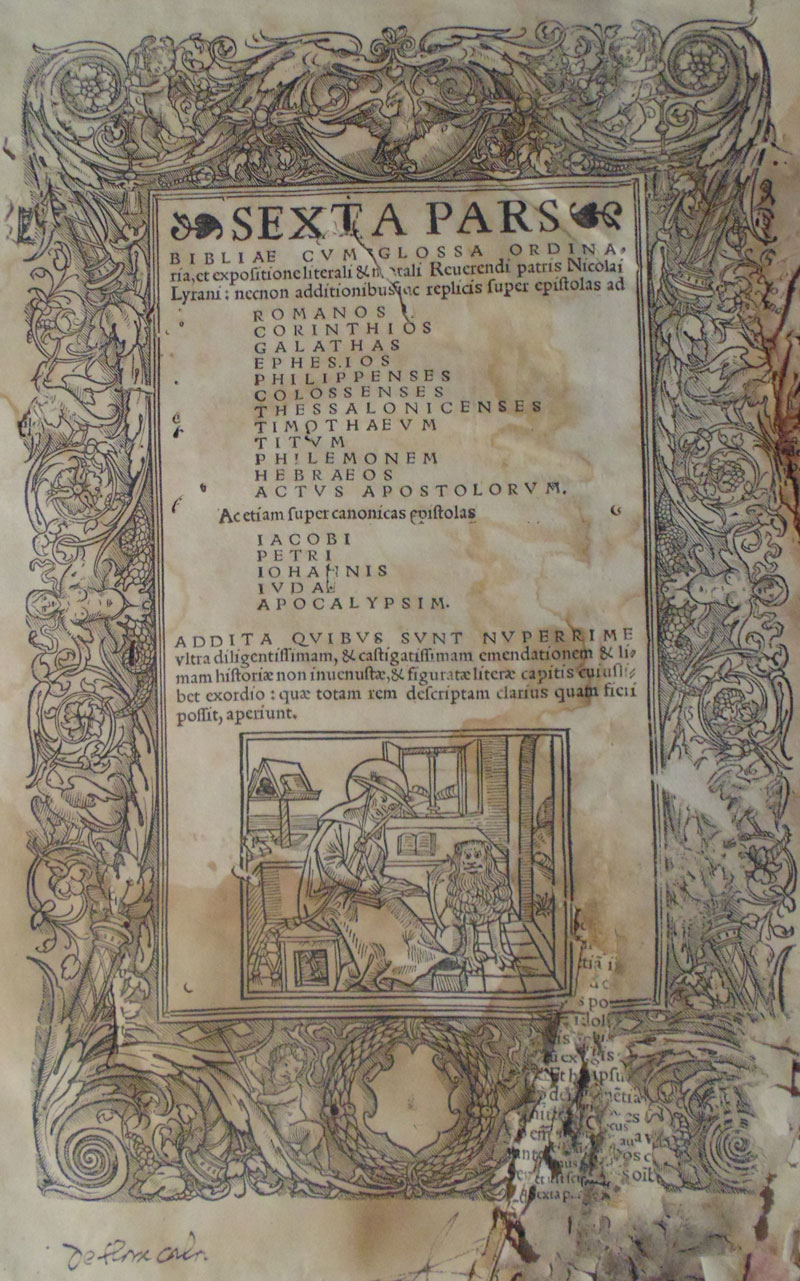 SEXTA PARS
BIBLIAE CVM GLOSSA ORDINA-
ria, et expoſitione literali & Reuerendi patris Nicolai
Lyrani: necnon additionibus ac replicis ſuper epiſtolas ad
ROMANOS
CORINTHIOS
GALATHAS
EPHESIOS
PHILIPPENSES
COLOSSENSES
THESSALONICENSES
TIMOTHAEVM
TITVM
PHILEMONEM
HEBRAEOS
ACTVS APOSTOLORVM.
Ac etiam ſuper canonicas epiſtolas
IACOBI
PETRI
IOHANNIS
IVDAE
APOCALYPSIM.
ADDITA QVIBVS SVNT NVPERRIME
vltra diligentiſſimam, & caſtigatiſſimam emendationem & li-
mam hiſtoriæ non inuenuſtæ, & figuratæ literæ capitis cuiuſli-
bet exordio: quæ totam rem deſcriptam clarius quam ficri
poſſit, aperiunt.